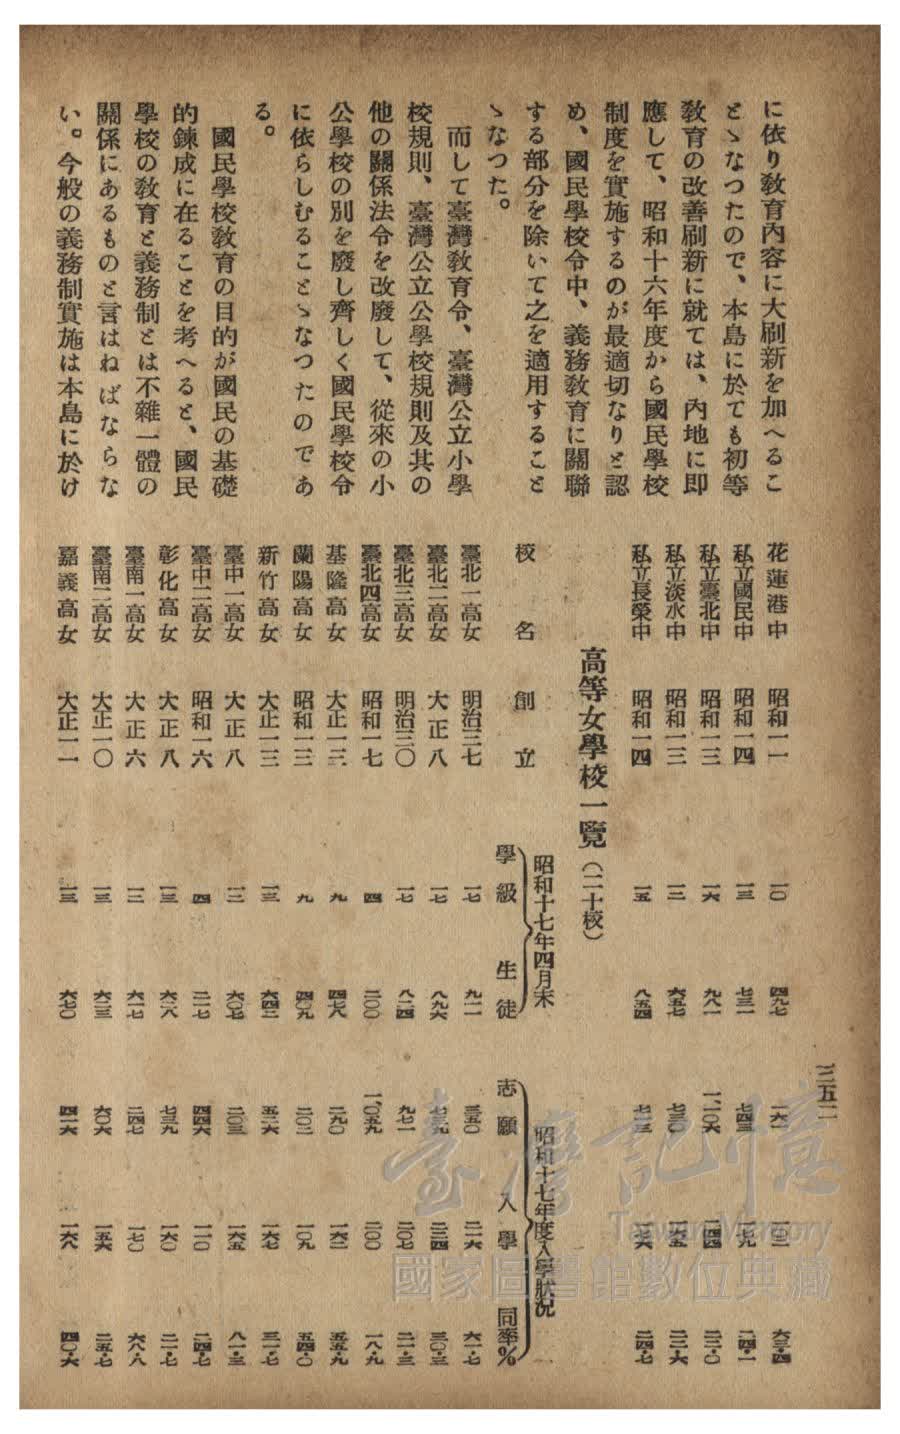 に依り敎育內容に大刷新を加へるこ
とゝなつたので、本島に於ても初等
敎育の改善刷新に就ては、內地に卽
應して、昭和十六年度から國民學校
制度を實施するのが最適切なりと認
め、國民學校令中、義務敎育に關聯
する部分を除いて之を適用すること
ゝなつた。
而して臺灣敎育令、臺灣公立小學
校規則、臺灣公立公學校規則及其の
他の關係法令を改廢して、從來の小
公學校の別を廢し齊しく國民學校令
に依らしむることゝなつたのであ
る。
國民學校敎育の目的が國民の基礎
的鍊成に在ることを考へると、國民
學校の敎育と義務制とは不離一體の
關係にあるものと言はねばならな
い。今般の義務制實施は本島に於け
花蓮港中 昭和一一 一〇 四九七 一六一 一〇二 六三・四
私立國民中 昭和一四 一三 七三一 七四三 一七九 二四・一
私立臺北中 昭和一三 一六 九八一 一、一〇六 二四四 二二・〇
私立淡水中 昭和一三 一二 六五七 七三〇 一六五 二二・六
私立長榮中 昭和一四 一五 八五四 七一三 一七六 二四・七
高等女學校一覽（二十校）
昭和十七年四月末 昭和十七年度入學狀況
校名 創立 學級 生徒 志願 入學 同率%
臺北一高女 明治三七 一七 九一一 三五〇 二一六 六一・七
臺北二高女 大正八 一七 八九六 七三九 二二四 三〇・三
臺北三高女 明治三〇 一七 八二四 九七一 二〇七 二一・三
臺北四高女 昭和一七 四 二〇〇 一、〇五九 二〇〇 一八・九
基隆高女 大正一三 九 四七八 二九〇 一六二 五五・九
蘭陽高女 昭和一三 九 四〇九 二〇二 一〇九 五四・〇
新竹高女 大正一三 一三 六四二 五二六 一六七 三一・七
臺中一高女 大正八 一二 六〇七 二〇三 一六五 八一・三
臺中二高女 昭和一六 四 二一七 四四六 一一〇 二四・七
彰化高女 大正八 一三 六二八 七三九 一六〇 二一・七
臺南一高女 大正六 一二 六一七 二四七 一七〇 六八・八
臺南二高女 大正一〇 一三 六二三 六〇六 一五六 二五・七
嘉義高女 大正一一 一三 六七〇 四一六 一六八 四〇・六
三五二
臺灣記憶
Taiwan Memory
國家圖書館數位典藏